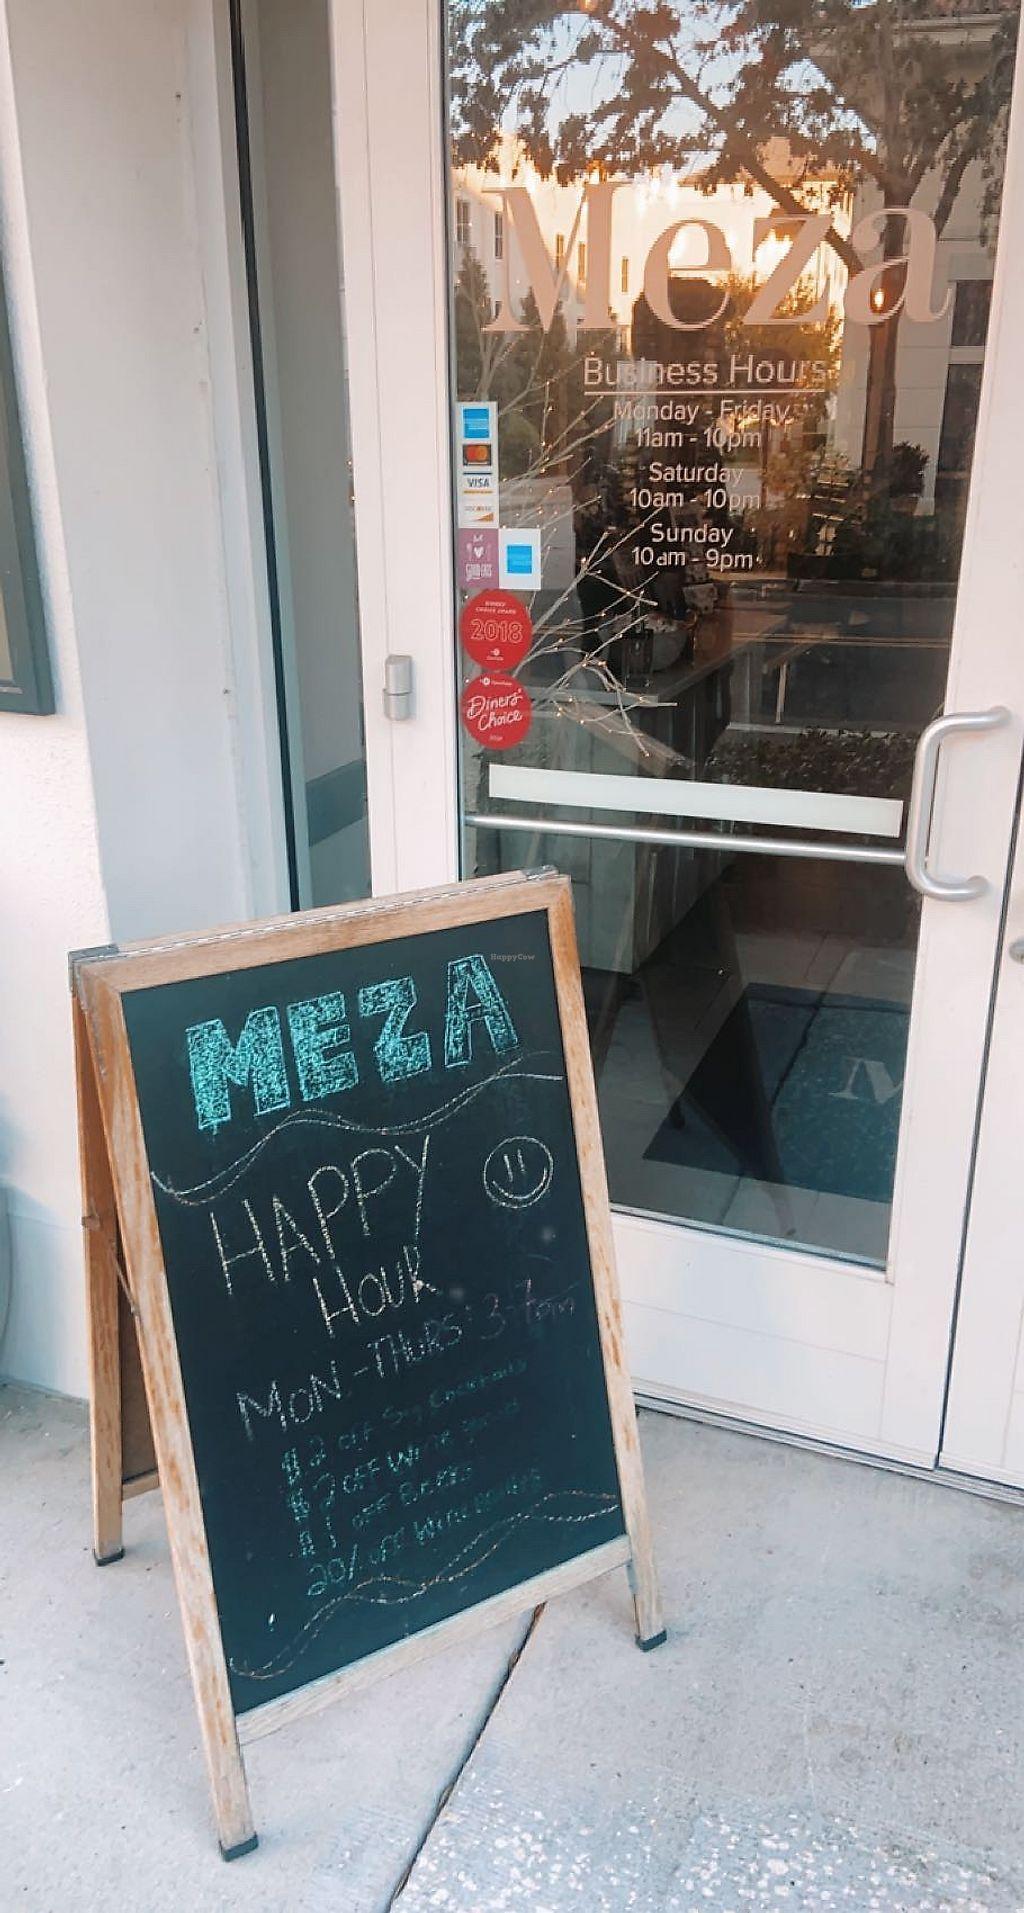 Meza
Business Hours
Monday - Friday
11am - 10pm
Saturday
10am - 10pm
Sunday
10am - 9pm
VISA
DISCOVER
GOOD EATS
DINERS'
CHOICE AWARD
2018
Diners'
Choice
HappyCow
MEZA
HAPPY
HOUR
MON-THURS: 3-
$2 OFF
$2 OFF WINE
$1 OFF BEERS
20% OFF WINE BOTTLES
M